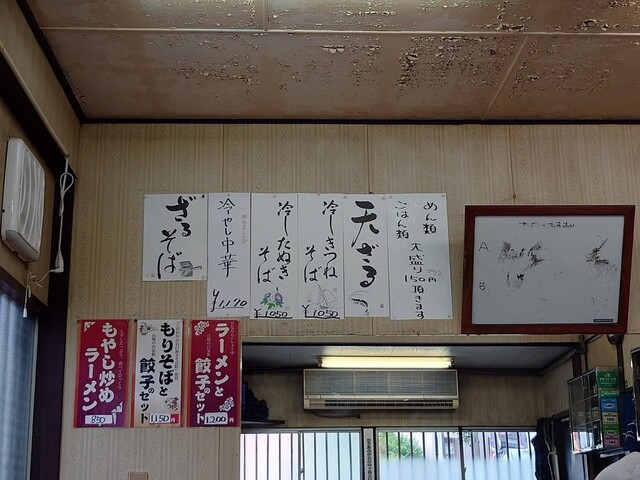 めん類
ごはん類
大盛り150円
頂きます
天ざる
冷しきつね
そば
¥1050
冷したぬき
そば
¥1050
冷やし中華
¥1170
ざるそば
A.
B
ラーメンと
餃子のセット
1200
もりそばと
餃子のセット
1150円
もやし炒め
ラーメン
850